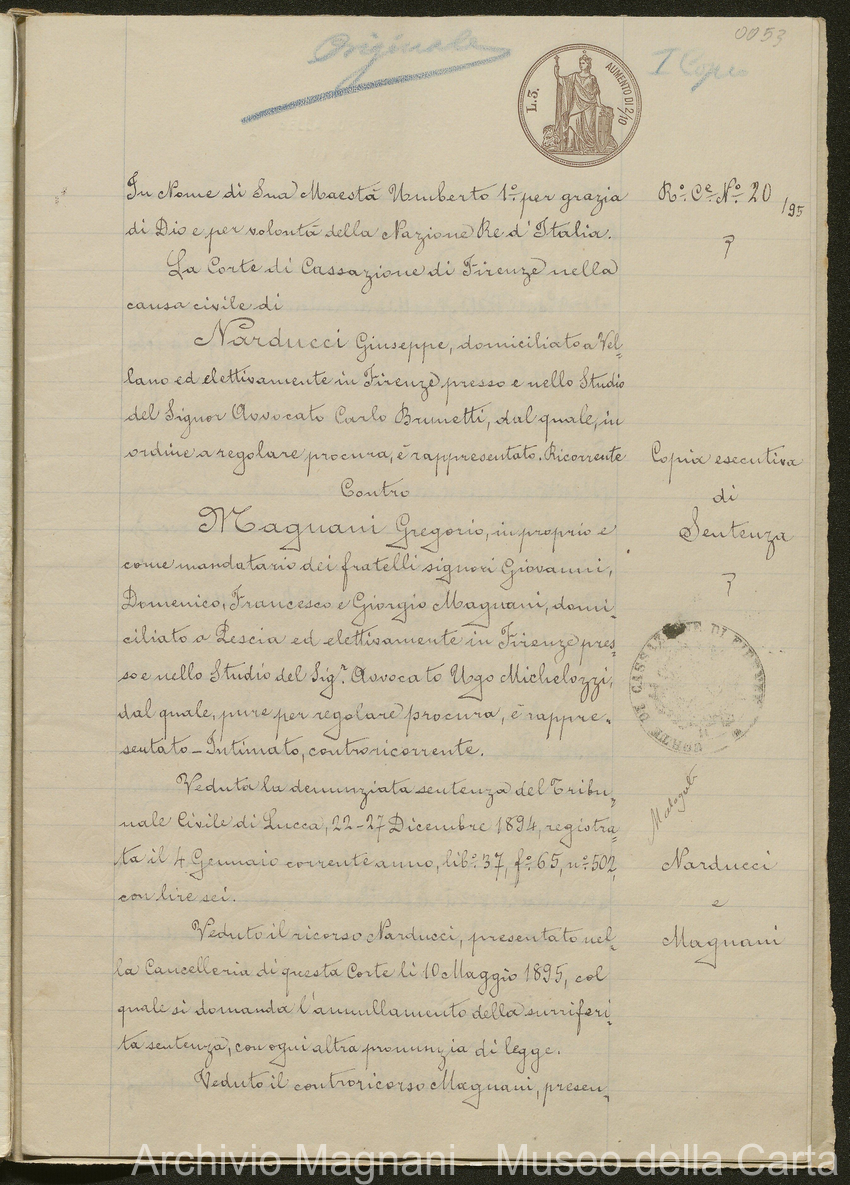 0053
Originale
I Copia
L. 3.
AUMENTO DI 2/10
In Nome di Sua Maestà Umberto 1º per grazia
di Dio e per volontà della Nazione Re d'Italia.
La Corte di Cassazione di Firenze nella
causa civile di
Narducci Giuseppe, domiciliato a Vel=
lano ed elettivamente in Firenze presso e nello Studio
del Signor Avvocato Carlo Brunetti, dal quale, in
ordine a regolare procura, è rappresentato. Ricorrente
Contro
Magnani Gregorio, in proprio e
come mandatario dei fratelli signori Giovanni,
Domenico, Francesco e Giorgio Magnani, domi=
ciliato a Pescia ed elettivamente in Firenze pres=
so e nello Studio del Sig.r Avvocato Ugo Michelozzi,
dal quale, pure per regolare procura, è rappre=
sentato - Intimato, controricorrente.
Veduta la denunziata sentenza del Tribu=
nale Civile di Lucca, 22-27 Dicembre 1894, registra=
ta il 4 Gennaio corrente anno, lib.º 37, fº 65, nº 502,
con lire sei.
Veduto il ricorso Narducci, presentato nel=
la Cancelleria di questa Corte li 10 Maggio 1895, col
quale si domanda l'annullamento della surriferi=
ta sentenza, con ogni altra pronunzia di legge.
Veduto il controricorso Magnani, presen=
Rº. Ce. Nº. 20/95
Copia esecutiva
di
Sentenza
CORTE DI CASSAZIONE DI FIRENZE
Narducci
e
Magnani
Archivio Magnani - Museo della Carta